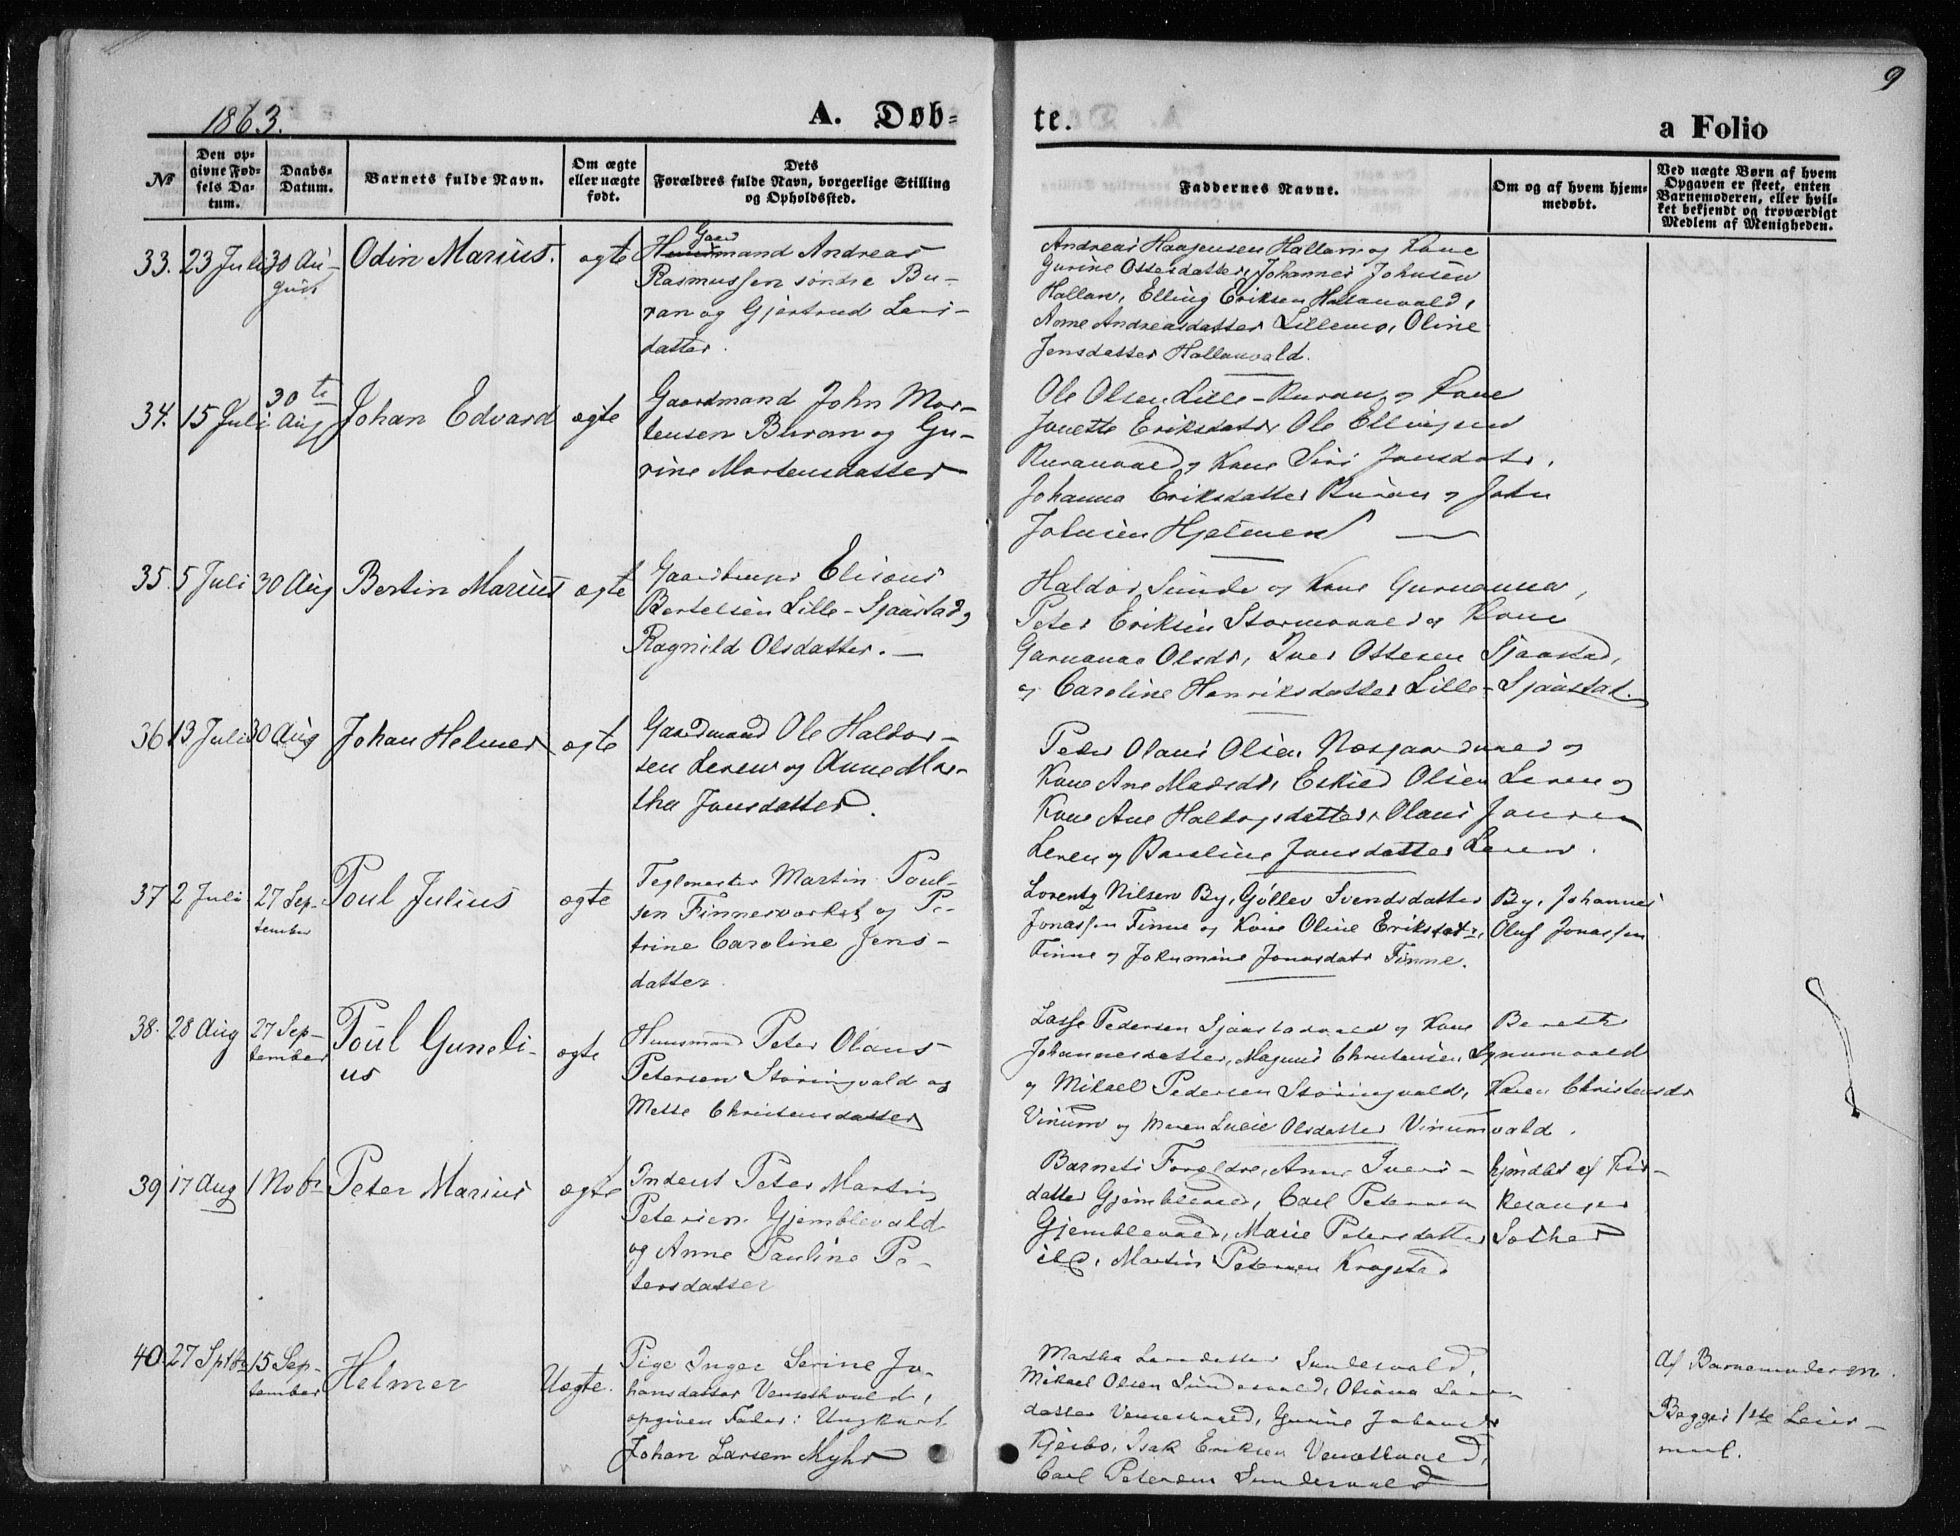 9
1863.
A. Døb-
te.
a Folio
No
Den op-
givne Fød-
sels Da-
tum.
Daabs-
Datum.
Barnets fulde Navn.
Om ægte
eller uægte
født.
Dets
Forældres fulde Navn, borgerlige Stilling
og Opholdssted.
Faddernes Navne.
Om og af hvem hjem-
medøbt.
Ved uægte Børn af hvem
Opgaven er skeet, enten
Barnemoderen, eller hvil-
ket bekjendt og troværdigt
Medlem af Menigheden.
33. 23 Juli 30 Au-
gust
Odin Marius.
ægte
Gaar
Huusmand Andreas
Rasmussen søndre Bu-
ran og Gjertrud Lars-
datter.
Andreas Haagensen Hallan og Kone
Gurine Ottesdatter, Johannes Johnsen
Hallan, Elling Eriksen Hallanvald,
Arne Andreasdatter Lillemo, Oline
Jensdatter Hallanvald.
34. 15 Juli 30te
Aug
Johan Edvard
ægte
Gaardmand John Mor-
tensen Buran og Gu-
rine Mortensdatter
Ole Olsen Lille-Buran og Kone
Jonette Eriksdatr Ole Ellingsen
Buranvald og Kone Siri Jonsdatr,
Johanna Eriksdatter Buran og John
Johnsen Hjelmen
35. 5 Juli 30 Aug
Bertin Marius
ægte
Elisæus
Bertelsen Lille-Sjaastad og
Ragnild Olsdatter.
Haldor Sunde og Kone Gurnanna,
Peter Eriksen Stormovald og Kone
Gurnanna Olsdr, Iver Ottesen Sjaastad,
og Caroline Henriksdatter Lille-Sjaastad.
36 13 Juli 30 Aug
Johan Helmer
ægte
Gaardmand Ole Haldor-
sen Leren og Anne Mar-
tha Jonsdatter.
Peder Olaus Olsen og
Kone Ane Madsdr, Eskild Olsen Leren og
Kone Ane Haldorsdatter, Olaus Jonsen
Leren og Jonsdatter Leren.
37 2 Juli 27 Sep-
tember
Poul Julius
ægte
Teglmester Martin Poul-
sen Finnesverket og Pe-
trine Caroline Jens-
datter
Lorentz Nilsen By, Gøllev Svendsdatter By, Johannes
Jonassen Finne og Kone Oline Eriksdatr, Oluf Jonassen
Finne og Jokumine Jonasdatr Finne.
38. 28 Aug 27 Sep-
tember
Poul Guneli-
us
ægte
Huusmand Peter Olaus
Petersen Støringvald og
Mette Christensdatter
Lasse Pedersen Sjaastadvald og Kone Bereth
Johannesdatter, Magnus Christensen Vinumvald
og Mikael Pedersen Støringvald, Karen Christensdr
Vinum og Maren Lucie Olsdatter Vinumvald.
39 17 Aug 1 Nobr
Peter Marius
ægte
Inderst Peter Martin
Petersen Gjemblevald
og Anne Pauline Pe-
tersdatter
Barnets Forældre, Anne Ivers-
datter Gjemblevald, Carl Petersen
Gjemblevald, Marie Petersdatter
ild, Martin Petersen Kragstad
hjemdøbt af Kir-
kesanger
40. 27 Sptbr 15 Sep-
tember
Helmer
Uægte.
Pige Inger Serine Jo-
hansdatter Venesthvald,
opgiven Fader: Ungkarl
Johan Larsen Myhr
Martha Larsdatter Sundesvald,
Mikael Olsen Sundesvald, Oliana Lars-
datter Venestvald, Gurine Johansdr
Kjeibo, Isak Eriksen Venestvald,
Carl Petersen Sundesvald
Af Barnemoderen.
Begges 1ste Leier-
maal.